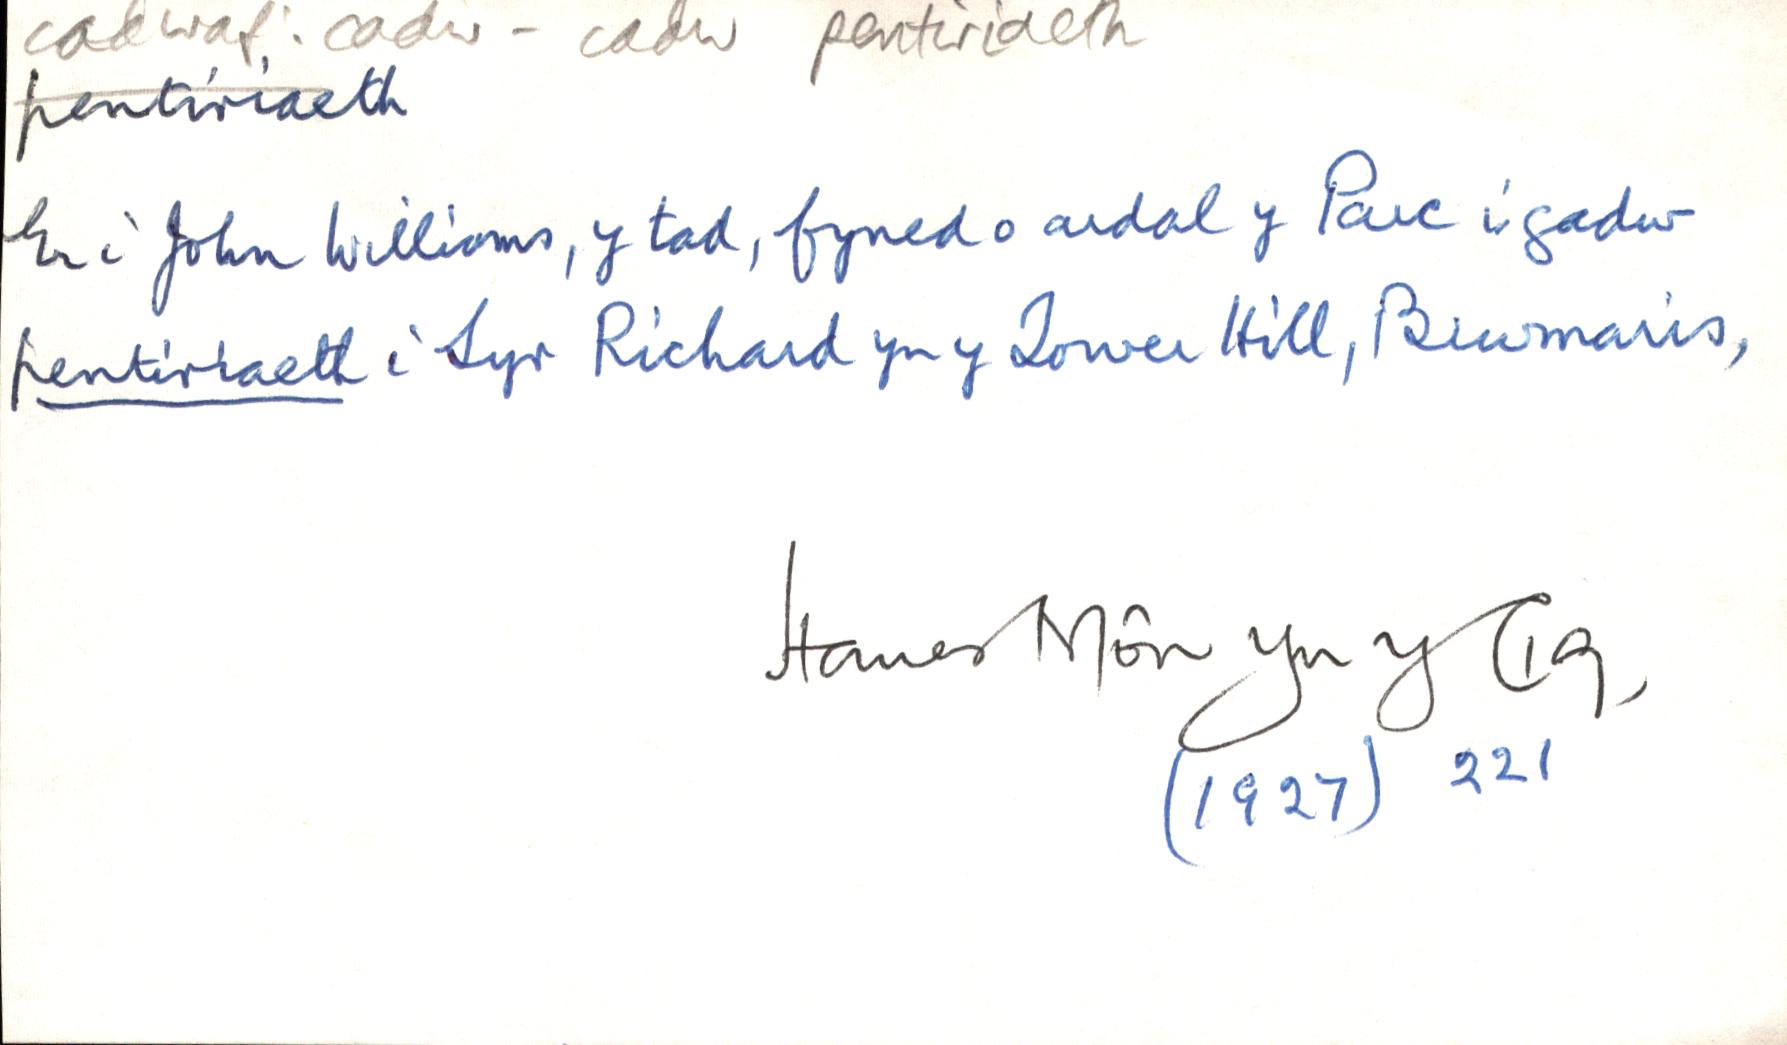 cadwaf: cadw - cadw pentiriaeth
pentiriaeth
Er i John Williams, y tad, fyned o ardal y Parc i gadw
pentiriaeth i Syr Richard yn y Tower Hill, Biwmaris,
Hanes Môn yn y 19g,
(1927) 221